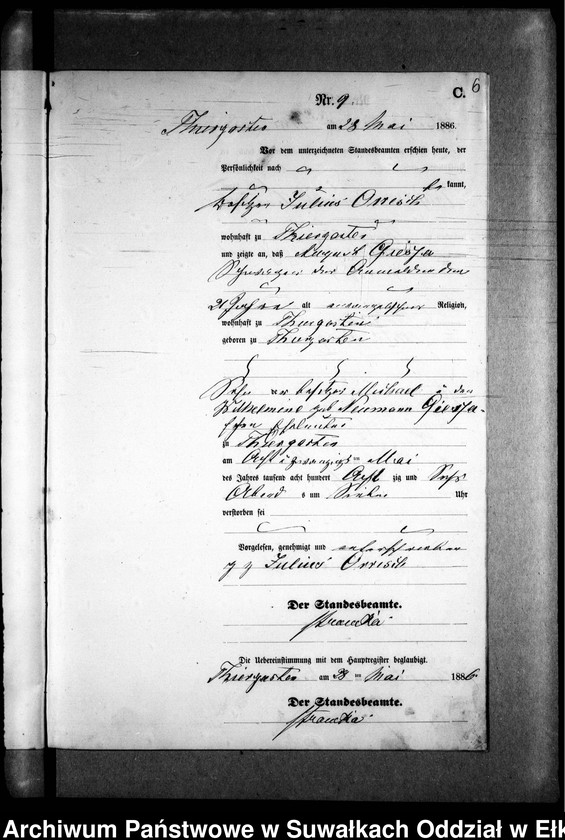 6
C.
Nr. 9
Thiergarten am 28 Mai 1886.
Vor dem unterzeichneten Standesbeamten erschien heute, der
Persönlichkeit nach
be kannt,
besitzer Julius
wohnhaft zu Thiergarten
und zeigte an, daß August
Schwager des Anmeldenden
21 Jahre alt evangelischer Religion,
wohnhaft zu Thiergarten
geboren zu Thiergarten
Sohn der besitzer Michael u der
Wilhelmine geb Neumann
schen Eheleute
zu Thiergarten
am Acht u zwanzigs ten Mai
des Jahres tausend acht hundert Acht zig und Sechs
Abend s um Sieben Uhr
verstorben sei
Vorgelesen, genehmigt und unterschrieben
Julius
Der Standesbeamte.
Die Uebereinstimmung mit dem Hauptregister beglaubigt.
Thiergarten am 28 ten Mai 1886
Der Standesbeamte.
Archiwum Państwowe w Suwałkach Oddział w Ełk